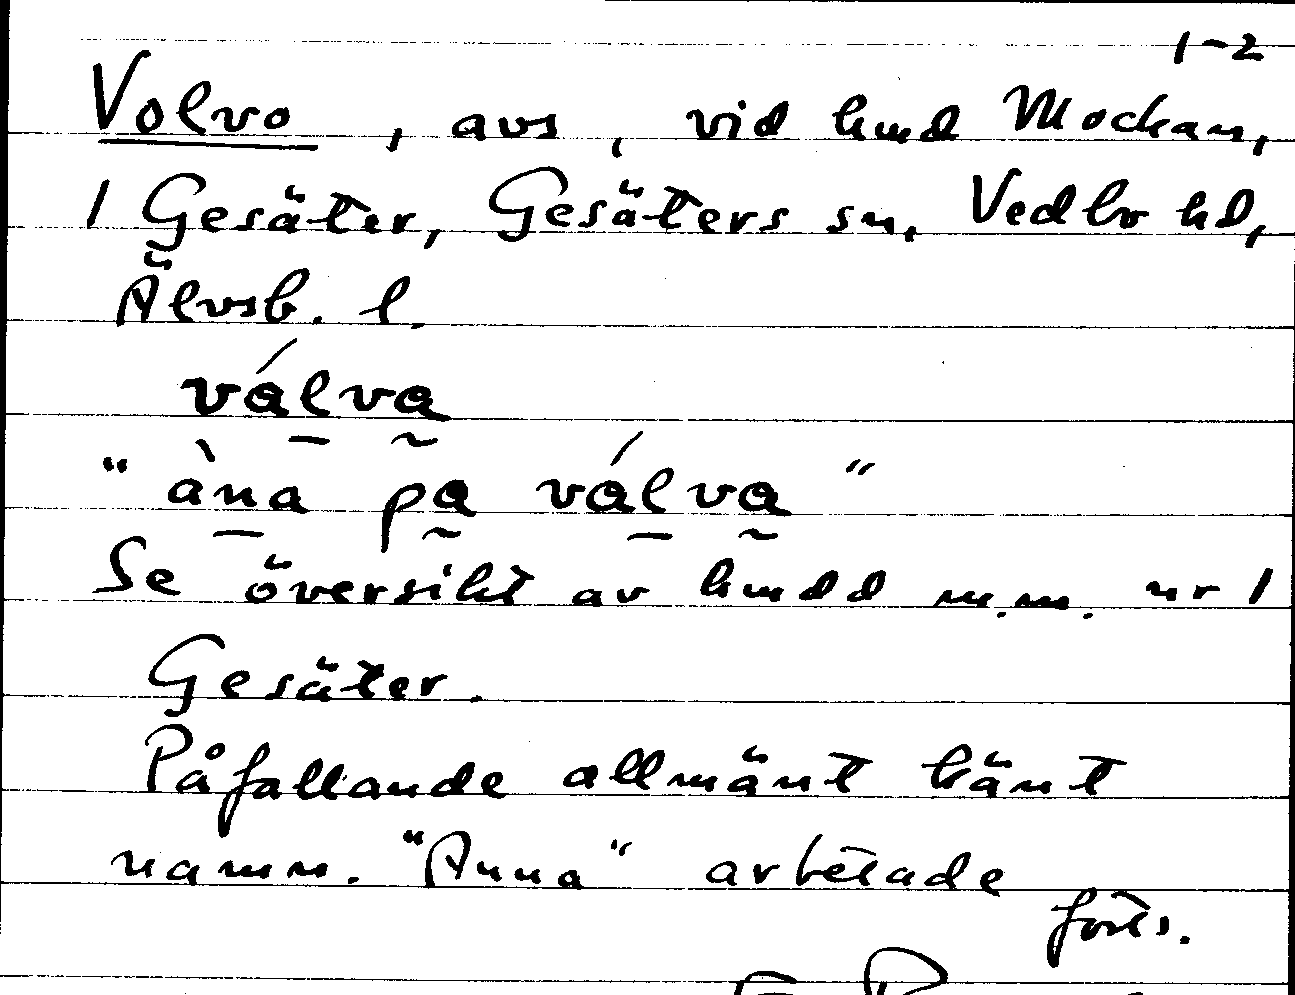 1-2
Volvo, avs, vid hmd Mockan,
1 Gesäter, Gesäters sn, Vedbo hd,
Älvsb. l.
válva
"àna pa válva"
Se översikt av hmdd m.m. nr 1
Gesäter.
Påfallande allmänt känt
namn. "Anna" arbetade
forts.